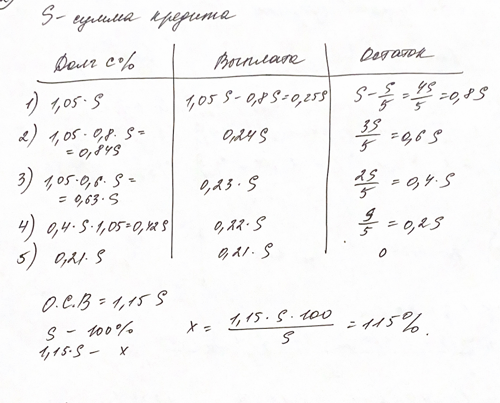 S - сумма кредита
Долг с% Выплата Остаток
1) 1,05·S 1,05S - 0,8S = 0,25S S - S/5 = 4S/5 = 0,8S
2) 1,05·0,8·S = 0,24S 3S/5 = 0,6S
= 0,84S
3) 1,05·0,6·S = 0,23·S 2S/5 = 0,4·S
= 0,63·S
4) 0,4·S·1,05=0,42S 0,22·S S/5 = 0,2S
5) 0,21·S 0,21·S 0
О.С.В = 1,15S
S - 100%
1,15·S - x
x = 1,15·S·100/S = 115%.